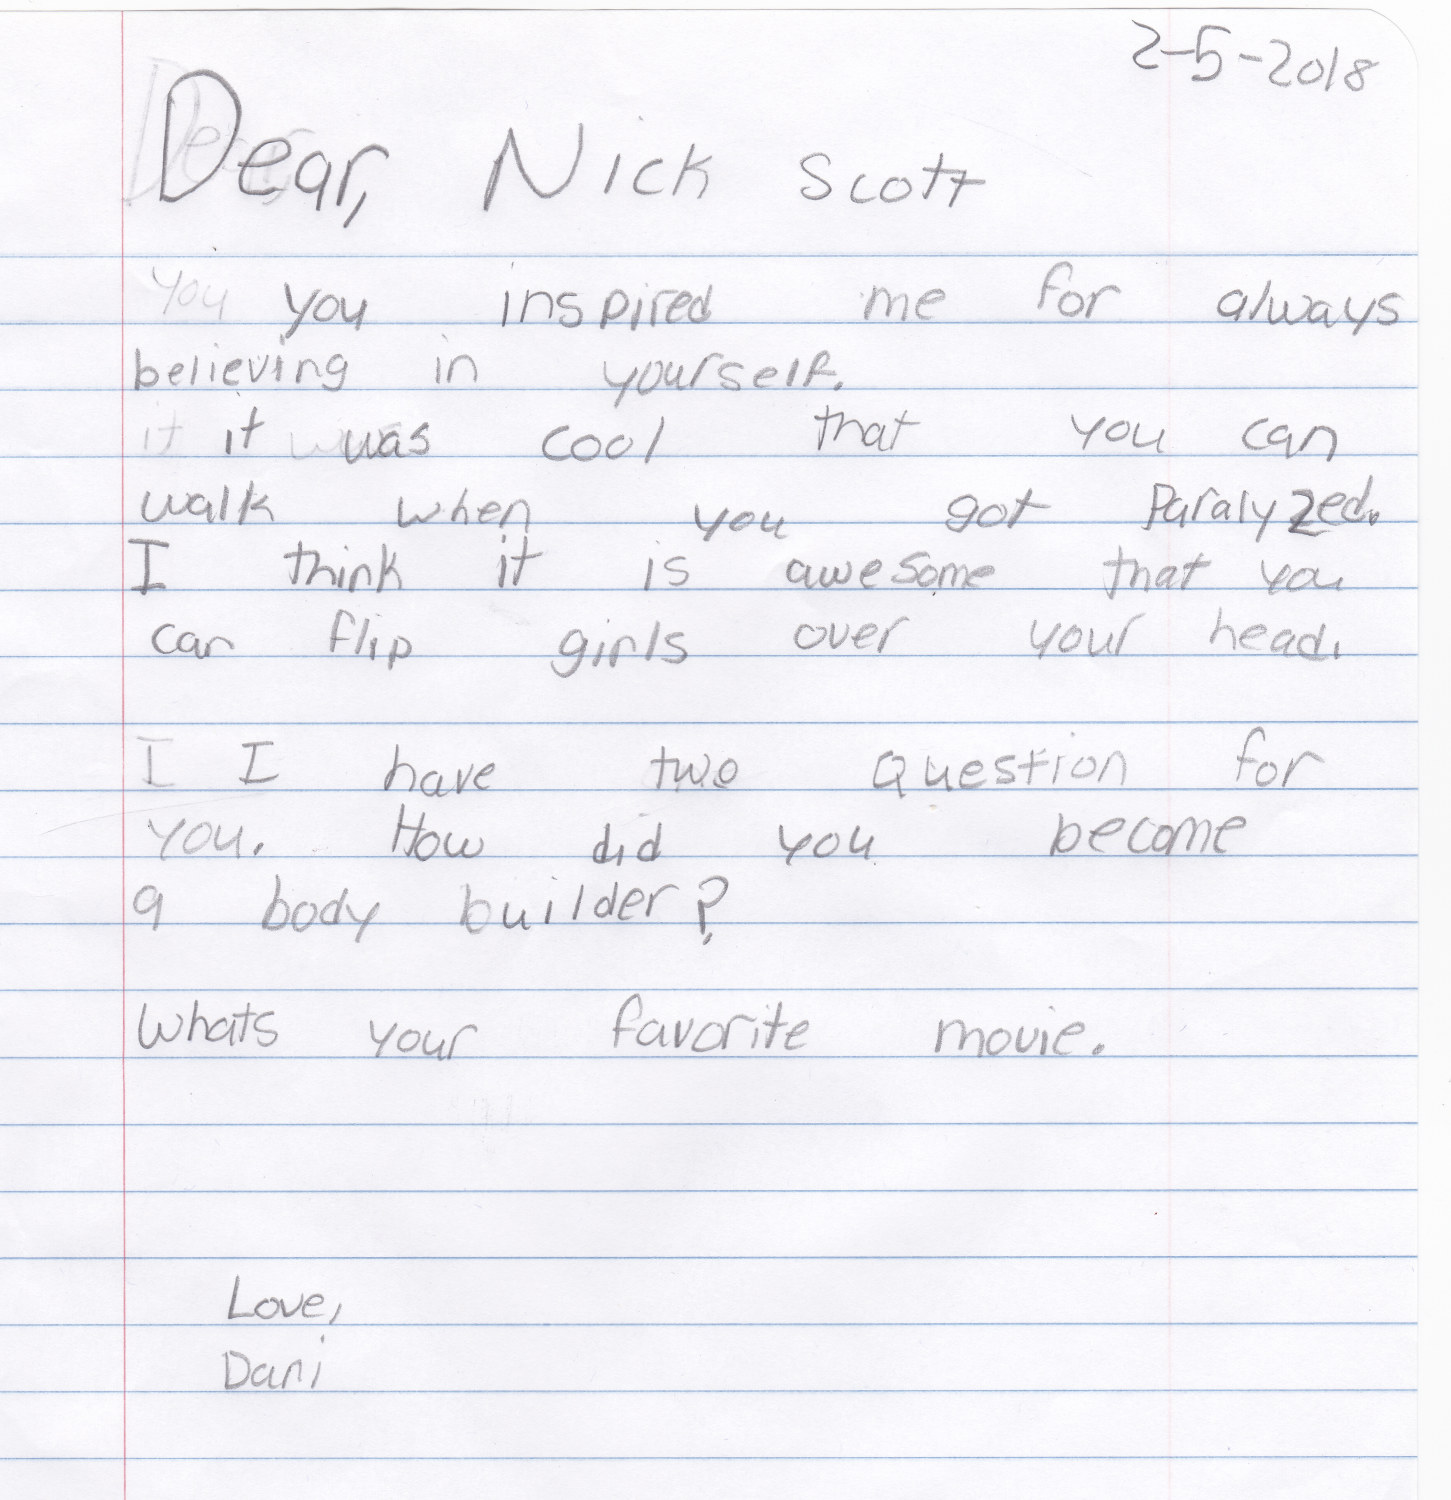 2-5-2018
Dear, Nick Scott
you you inspired me for always
believing in yourself.
it it was cool that you can
walk when you got Paralyzed.
I think it is awesome that you
can flip girls over your head.
I I have two question for
you. How did you become
a body builder?
Whats your favorite movie.
Love,
Dani